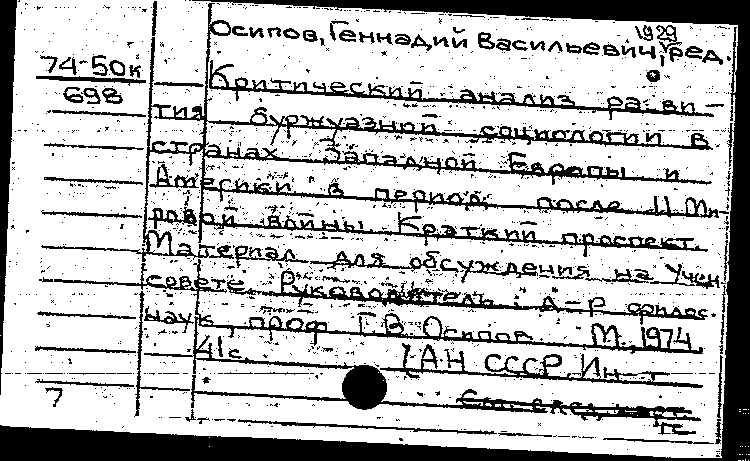 1929
Осипов, Геннадий Васильевич, ред.
74-50к
698
Критический анализ разви-
тия буржуазной социологии в
странах Западной Европы и
Америки в период после II Ми-
ровой войны. Краткий проспект.
Материал для обсуждения на Учен.
совете. Руководитель: д-р филос.
наук, проф. Г.В. Осипов. М., 1974.
41 с. (АН СССР. Ин-т
См. след. карт.
7